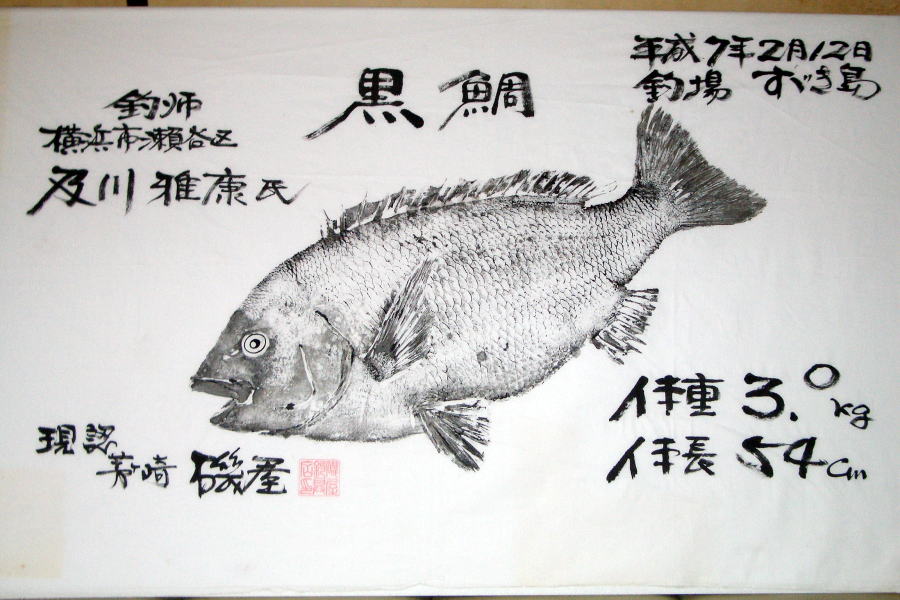 黒鯛
平成7年2月12日
釣場 すゞき島
釣師
横浜市瀬谷区
及川 雅康氏
体重 3.0kg
体長 54cm
現認
茅ヶ崎 磯屋